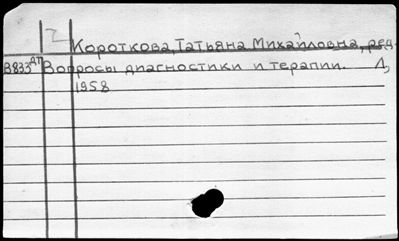 Короткова, Татьяна Михайловна, ред.
B833 ДП Вопросы диагностики и терапии. Л,
1958